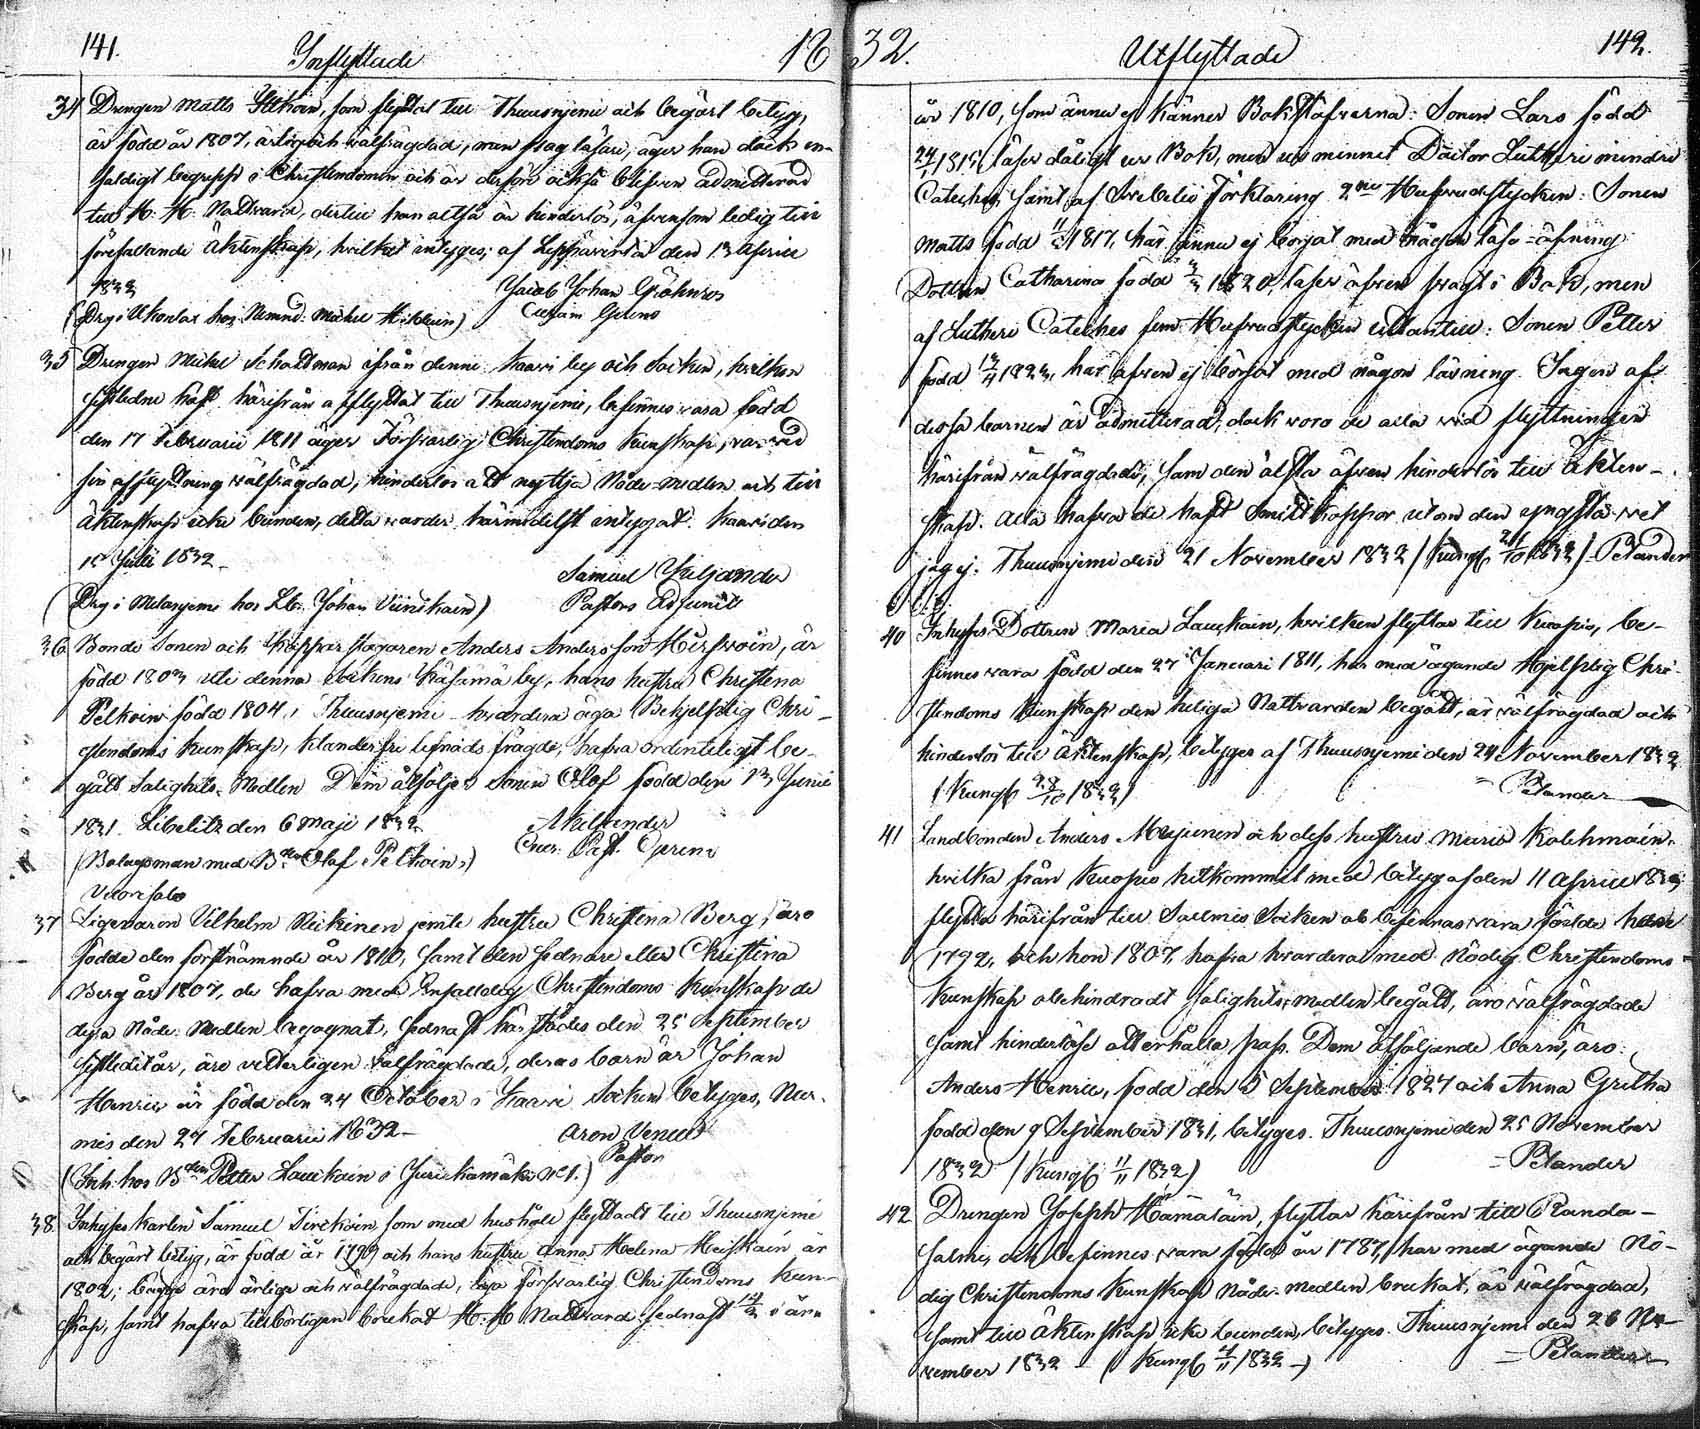 141. Inflyttade 18
34 Drengen Matts Ikoin, som flyttat till Thuusnjemi och begärt betyg,
är född år 1807, ärlig och välfrägdad, men svag läsare, äger han dock en-
faldigt begrepp i Christendomen och är derföre också blifven admitterad
till H. H. Nattvard, dertill han altså är hinderlös, äfvensom ledig till
förefallande Äktenskap, hvilket intyges; af Leppävirta den 13 April
1832 Jacob Johan
(Drg i Ukonlax hos Nemnd: Mickel Mikkain)
35 Drengen Mickel Schaldman ifrån denne Kaavi by och Socken, hvilken
sistledne höst härifrån afflyttat till Thuusnjemi, befinnes vara född
den 17 Februarii 1811 äger Försvarlig Christendoms Kunskap, var vid
sin afflyttning välfrägdad, hinderlös att nyttja Nåde-medlen och till
Äktenskap icke bunden, detta varder härmedelst intygat. Kaavi den
1 Julii 1832. Samuel Ziljander
(Drg i Melanjemi hos Lb: Johan Viinikain) Pastors Adjunct
36 Bonde Sonen och Anders Andersson Hirvoin, är
född 1803 uti denna Sockens Käsämä by, hans hustru Christina
Pelkoin född 1804 i Thuusnjemi hvardera äga Behjelplig Chri-
stendoms kunskap, klanderfri lefnads frägde, hafva ordenteligt be-
gått Salighets Medlen Dem åtföljer Sonen Olof född den 13 Junii
1831. Libelitz den 6 Maji 1832.
(Bolagsman med Bden Olof Pelkoin)
37 Ligevaron Vilhelm Neikinen jemte hustru Christina Berg, äro
födde den förstnämnde år 1810, samt den sednare eller Christina
Berg år 1807, de hafva med Enfalldig Christendoms Kunskap de
dyra Nåde Medlen begagnat, sednast här städes den 25 September
sistledit år, äro vetterligen välfrägdade, deras barn är Johan
Henric är född den 24 October i Kaavi Socken betyges, Nur-
mis den 27 Februarii 1832 Aron Venell
(Inh: hos Bden Petter Laukain i Jurikamäki No 1.) Pastor
38 Inhyses karlen Samuel Tirekoin som med hushåll flyttadt till Thuusnjemi
och begärt betyg, är född år 1799 och hans hustru Anna Helena Heiskain är
1802; begge äro ärlige och välfrägdade, äga Försvarlig Christendoms Kun-
skap, samt hafva tillbörligen brukat H: H Nattvard sednast i år
32. Utflyttade 142.
år 1810, som ännu ej känner Bokstäfverna: Sonen Lars född
läser dåligt ur Bok, men ur minnet Doctor Lutheri mindre
Cateches, samt af Svebelii Förklaring 2ne Hufvudstycken: Sonen
Matts född 1817, har ännu ej börjat med någon läse-öfning
Dottren Catharina född 1820, läser äfven svagt i Bok, men
af Lutheri Cateches fem Hufvudstycken utantill: Sonen Petter
född 1823, har äfven ej börjat med någon läsning. Ingen af
dessa barnen är admitterad, dock voro de alla vid flyttningen
härifrån välfrägdade, Sam den älsta äfven hinderlös till Äkten-
skap. Alla hafva de haft Smittkoppor utom den yngsta vet
jag ej. Thuusnjemi den 21 November 1832 (kungf 1832) Pelander
40 Inhyses Dottren Maria Laukain, hvilken flyttar till Kuopio, be-
finnes vara född den 27 Januari 1811, har med ägande Hjelplig Chri-
stendoms Kunskap den heliga Nattvarden begått, är välfrägdad och
hinderlös till Äktenskap, betyges af Thuusnjemi den 24 November 1832
(Kungf 28/10 1832) = Pelander
41 Landbonden Anders Meijunen och dess hustru Maria Kolehmain,
hvilka från Kuopio hitkommit med betyg af den 11 April 1829
flytta härifrån till Salmis Socken och befinnas vara födde han
1792, och hon 1807, hafva hvardera med Nödig Christendoms
Kunskap obehindradt salighets medlen begått, äro välfrägdade
samt hinderlöse att erhålla pass. Dem åtföljande barn, äro:
Anders Henric, född den 5 September 1827 och Anna Gretha
född den 9 September 1831, betyges. Thuusnjemi den 25 November
1832 (kungf 11/11 1832) = Pelander
42 Drengen Joseph Hämäläin, flyttar härifrån till Randa-
salmi, och befinnes vara född år 1787, har med ägande Nö-
dig Christendoms Kunskap Nåde medlen brukat, är välfrägdad,
samt till Äktenskap icke bunden, betyges. Thuusnjemi den 26 No-
vember 1832 - (kungf 4/11 1832 -) = Pelander